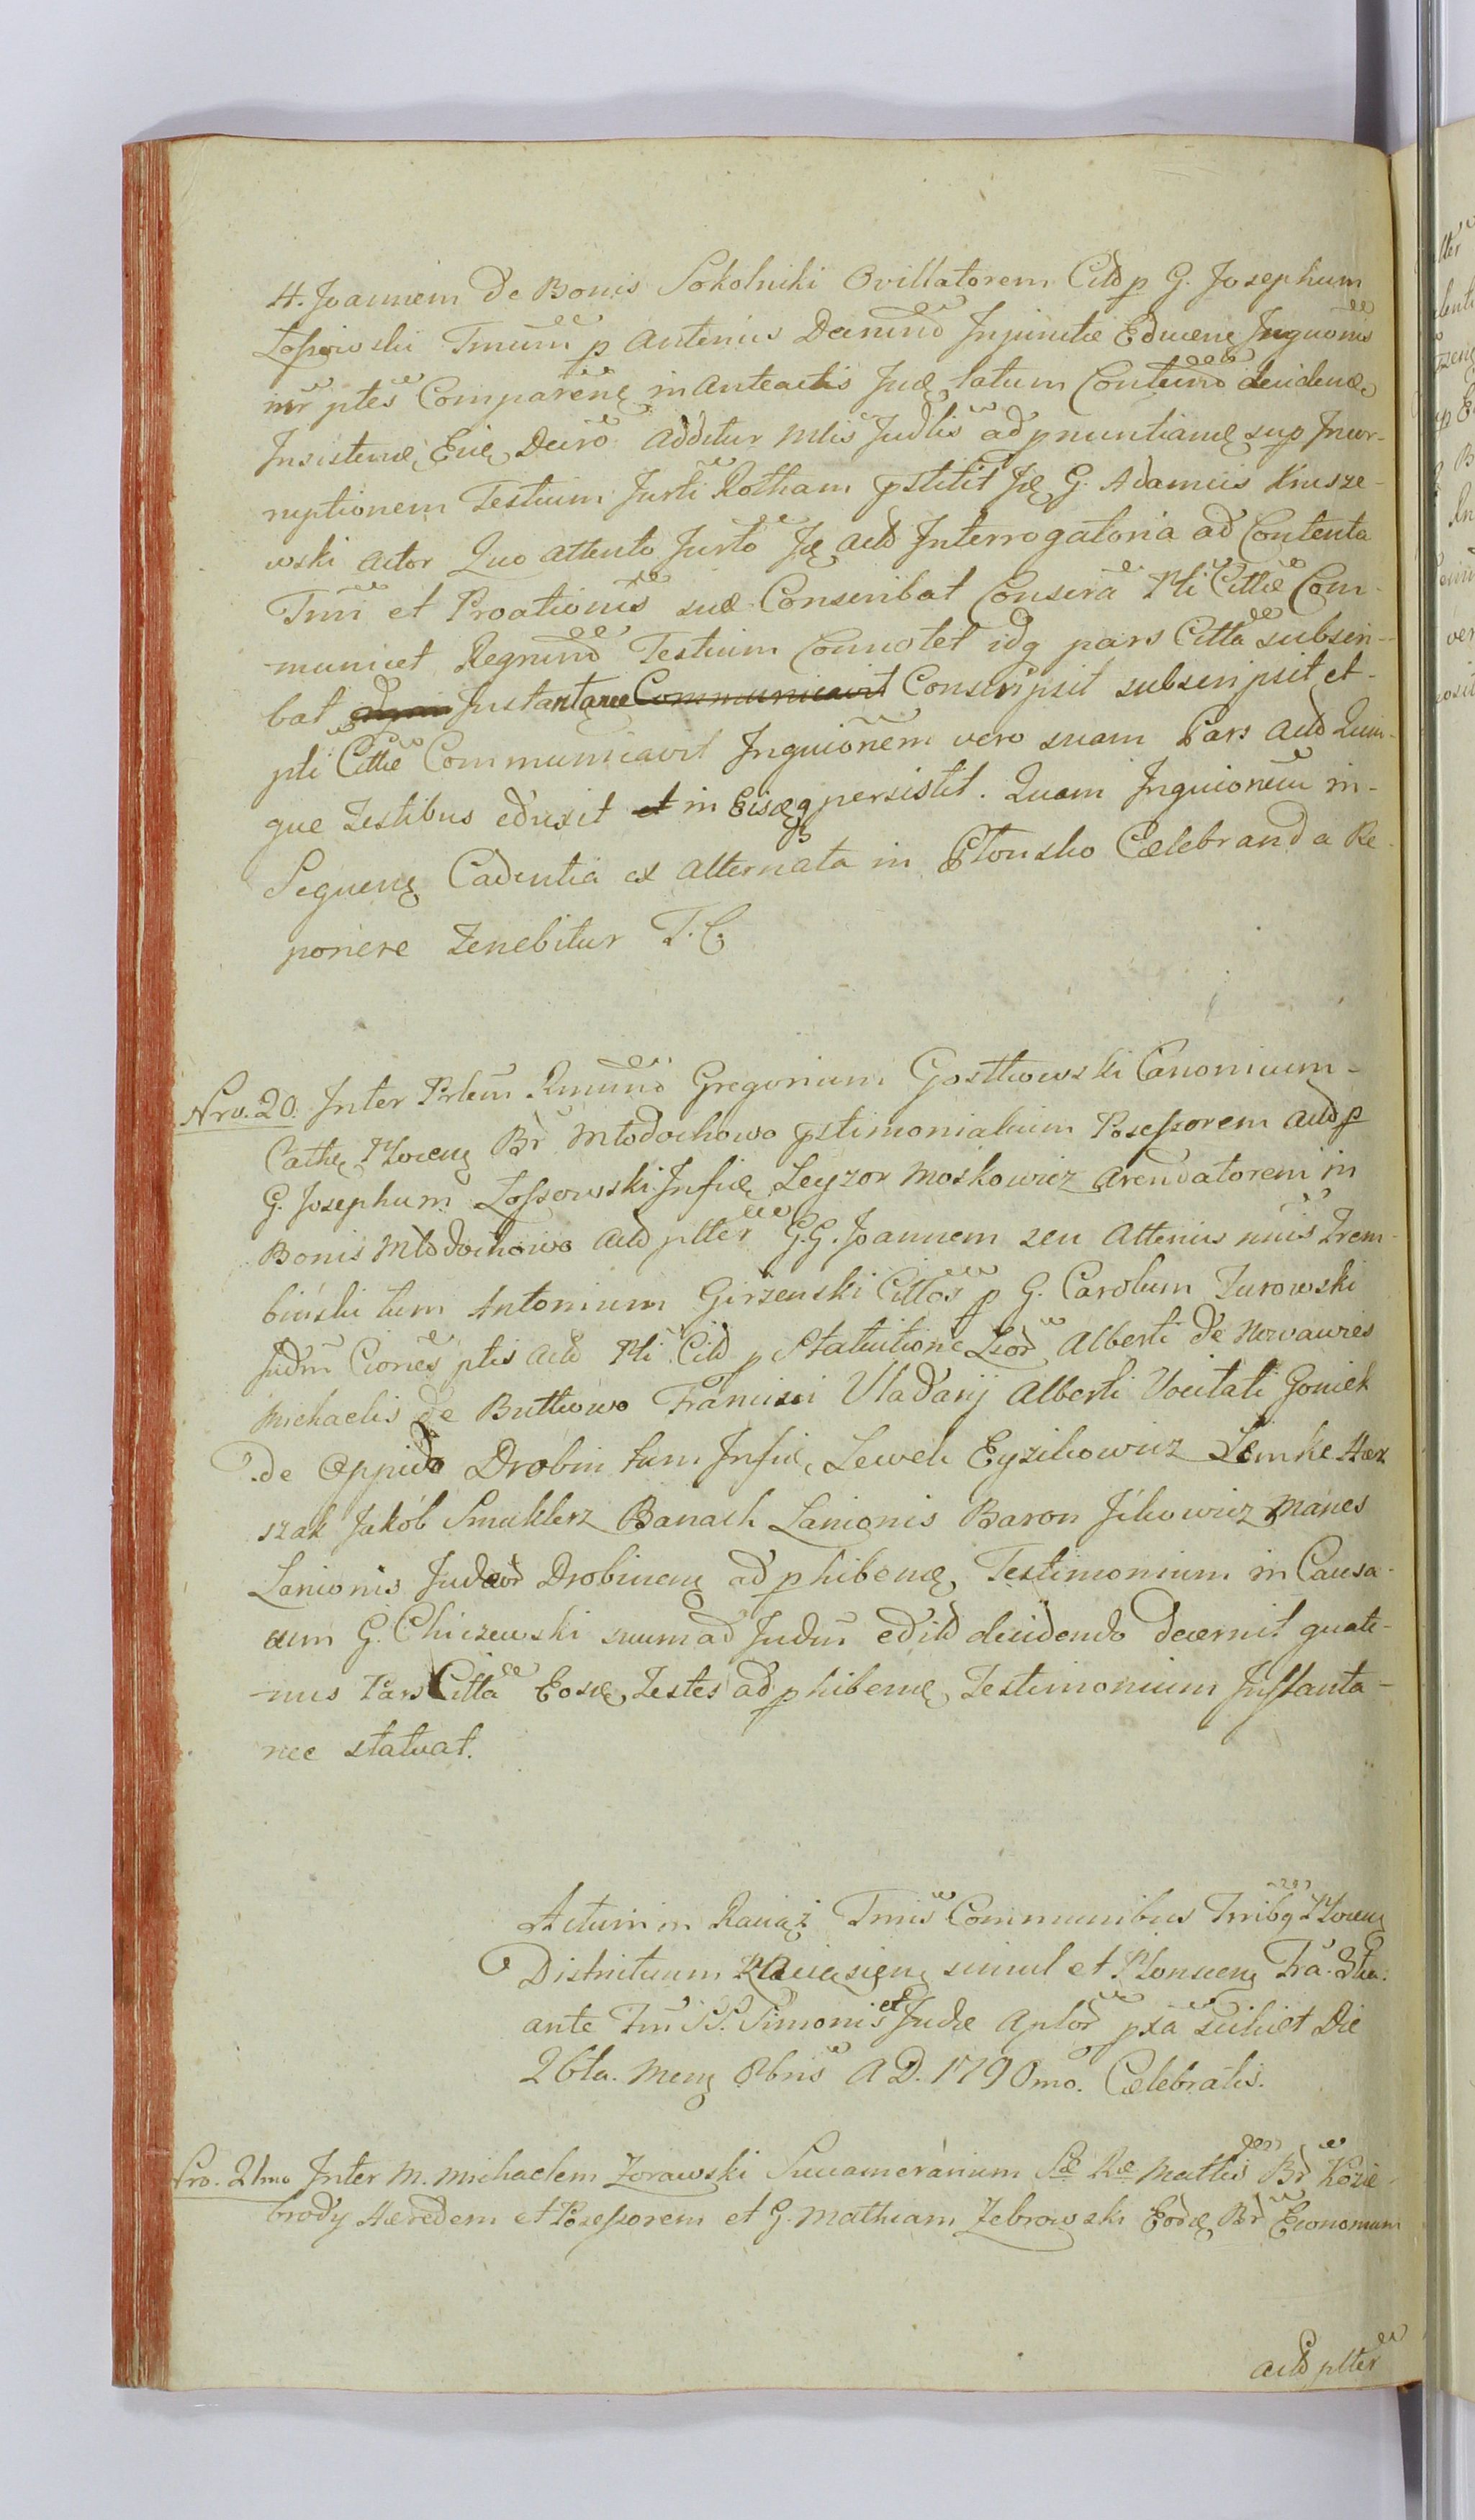 H. Joannem de Bonis Sokolniki Ovillatorem Citd p G. Josephum
Lossowski Tmum p antenus Decrmd Injunctæ Educenę Inquonis
inr ptes Comparenę in anteactis Judę latum Contumd decidenę
Insistenę Euę Decro additur Mtis Judlis ad pnuntiandę sup Incor-
ruptionem Testium Jurti Rotham pstitit Idę G. Adamus Krusze-
wski actor Quo attento Jurto Idę Actd Interrogatoria ad Contenta
Tmi et Proationis suæ Conscribat Conscra Pti Cittæ Com-
municet Regnmd Testium Connotet idq pars Citta subscri-
bat Instantanee Communicavit Conscripsit subscripsit et
pti Cittæ Communicavit Inquionem vero suam Pars Actd Quin-
que Testibus eduxit et in Eisdęq persistit. Quam Inquionem in
Sequenę Cadentia ex alternata in Płonsko Cælebranda Re-
ponere Tenebitur T. C.
Nro. 20. Inter Prlem Rmund Gregorium Gostkowski Canonicum
Cathę Plocenę Br Młodochowo pstimonialium Posessorem actd p
G. Josephum Lossowski Infię Leyzor Moskowicz arendatorem in
Bonis Młodochowo actd ptter G.G. Joannem seu Attenius nnis Trem-
biński tum Antonium Girzenski Cittos p G. Carolum Zurowski
Judm Ciones ptis actd Pti Citd p Statuitione Laor Alberti de Nowawies
Michaelis de Buttowo Francisci Vladarij Alberti Vocitati Goniek
de Oppido Drobin tum Infię Lewek Eyzikowicz Lemke Her
szak Jakób Smuklerz Banach Lanionis Baron Jćkowicz Manes
Lanionis Judæor Drobinenę ad phibendę Testimonium in Causa
cum G. Chiczewski suum ad Judm editd decidendo decernit quate-
nus Pars Citta Eosdę Testes ad phibendę Testimonium Instanta-
nee statuat.
Actum in Raciąż Tmis Communibus Tmibq Plocenę
Districtuum Raciąsienę simul et Plonscenę Fra. 3tia.
ante Fm S.S. Simonis et Judæ Aplor pxa scilicet Die
26ta. Menę 8bris A D. 1790mo. Cælebratis.
Nro. 21mo Inter M. Michaelem Zorawski Succamerarium Sæ Ræ Mattis Br Kozie-
brody Hæredem et Posessorem et G. Mathiam Zebrowski Eordę Br Economum
actd ptter